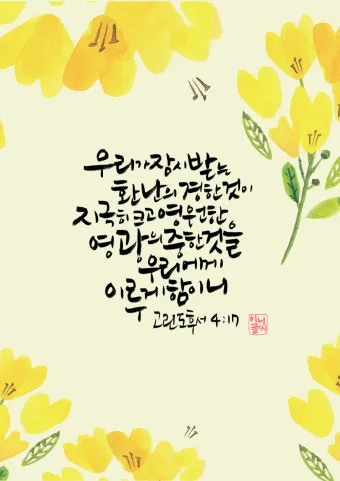 우리가 잠시 받는
환난의 경한 것이
지극히 크고 영원한
영광의 중한 것을
우리에게
이루게 함이니
고린도후서 4:17